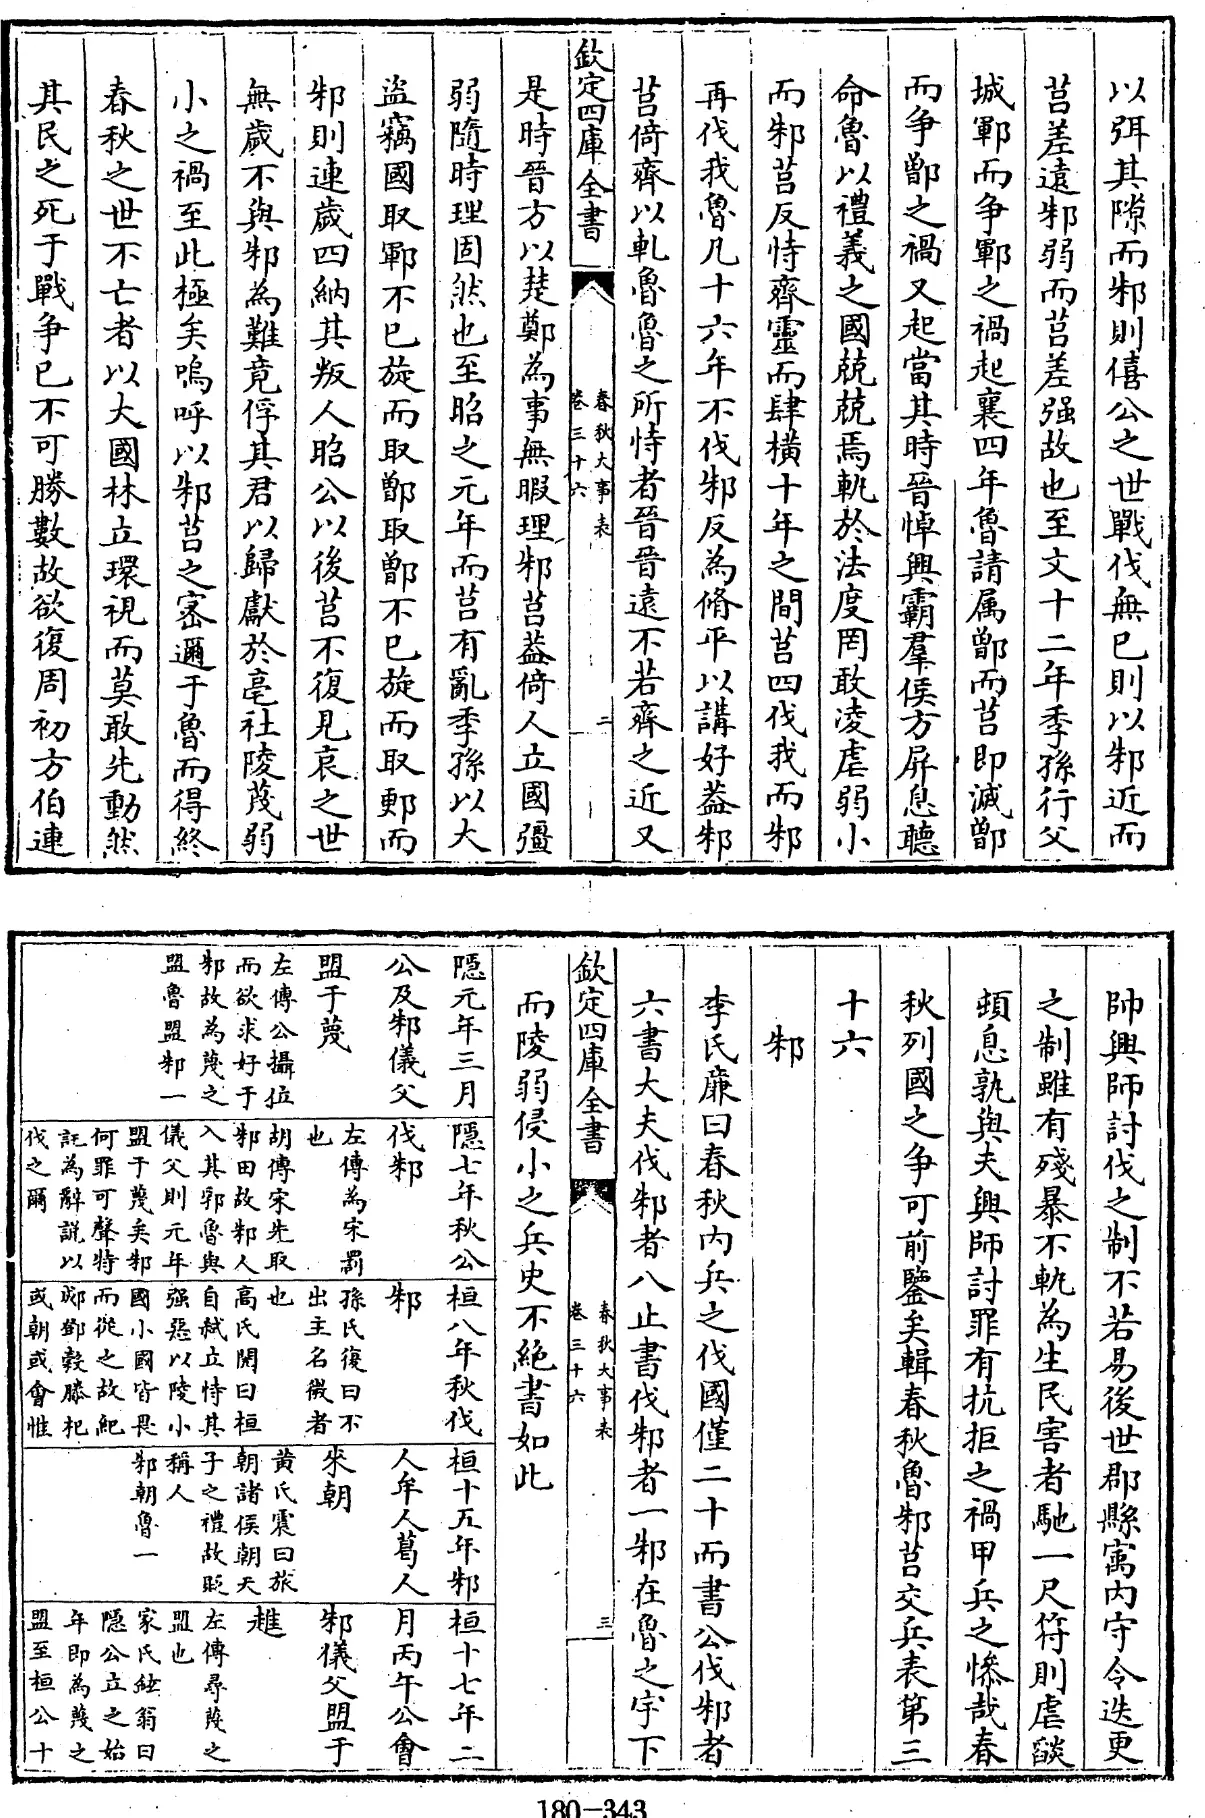 以弭其隙而邾則僖公之世戰伐無已則以邾近而
莒差遠邾弱而莒差强故也至文十二年季孫行父
城鄆而争鄆之禍起襄四年魯請属鄫而莒即滅鄫
而争鄫之禍又起當其時晉悼興霸羣侯方屏息聽
命魯以禮義之國兢兢焉軌於法度罔敢凌虐弱小
而邾莒反恃齊靈而肆横十年之間莒四伐我而邾
再伐我魯凡十六年不伐邾反為脩平以講好葢邾
莒倚齊以軋魯魯之所恃者晉晉遠不若齊之近又
欽定四庫全書
春秋大事表
卷三十六
二
是時晉方以楚鄭為事無暇理邾莒葢倚人立國彊
弱隨時理固然也至昭之元年而莒有亂季孫以大
盜竊國取鄆不已旋而取鄫取鄫不已旋而取郠而
邾則連歲四納其叛人昭公以後莒不復見哀之世
無歲不與邾為難竟俘其君以歸獻於亳社陵蔑弱
小之禍至此極矣嗚呼以邾莒之密邇于魯而得終
春秋之世不亡者以大國林立環視而莫敢先動然
其民之死于戰争已不可勝數故欲復周初方伯連
帥興師討伐之制不若易後世郡縣寓内守令迭更
之制雖有殘暴不軌為生民害者馳一尺符則虐燄
頓息孰與夫興師討罪有抗拒之禍甲兵之慘哉春
秋列國之争可前鑒矣輯春秋魯邾莒交兵表第三
十六
邾
李氏廉曰春秋内兵之伐國僅二十而書公伐邾者
六書大夫伐邾者八止書伐邾者一邾在魯之宇下
欽定四庫全書
春秋大事表
卷三十六
三
而陵弱侵小之兵史不絶書如此
隱元年三月
公及邾儀父
盟于蔑
左傳公攝位
而欲求好于
邾故為蔑之
盟魯盟邾一
隱七年秋公
伐邾
左傳為宋罰
也
胡傳宋先取
邾田故邾人
入其郛魯與
儀父則元年
盟于蔑矣邾
何罪可聲特
託為辭説以
伐之爾
桓八年秋伐
邾
孫氏復曰不
出主名微者
也
高氏閌曰桓
自弑立恃其
强惡以陵小
國小國皆畏
而從之故紀
郕鄧穀滕杞
或朝或會惟
桓十五年邾
人牟人葛人
來朝
黄氏震曰旅
朝諸侯朝天
子之禮故貶
稱人
邾朝魯一
桓十七年二
月丙午公會
邾儀父盟于
趡
左傳尋蔑之
盟也
家氏鉉翁曰
隱公立之始
年即為蔑之
盟至桓公十
180-343